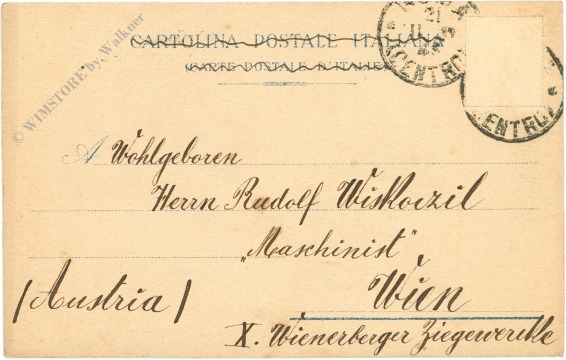 CARTOLINA POSTALE ITALIANA
CARTE POSTALE D'ITALIE
ROMA
21
11
(CENTRO)
CENTRO
© WIMSTORE by Walkner
A Wohlgeboren
Herrn Rudolf Wiskoczil
„Maschinist"
/Austria/
Wien
X. Wienerberger Ziegewerke